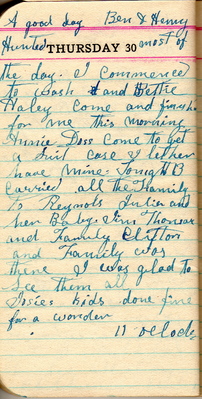 A good day Ben & Henry
Hunted most of
THURSDAY 30
the day. I commenced
to wash and Bettie
Haley come and finish
for me this morning
Annie Doss come to get
a suit case I let her
have mine. Tonight B
carried all the Family
to Reynols Julia and
her Baby. Jim Thomas
and Family Clifton
and Family was
there I was glad to
see them all
Josie's kids done fine
for a wonder
11 oclock